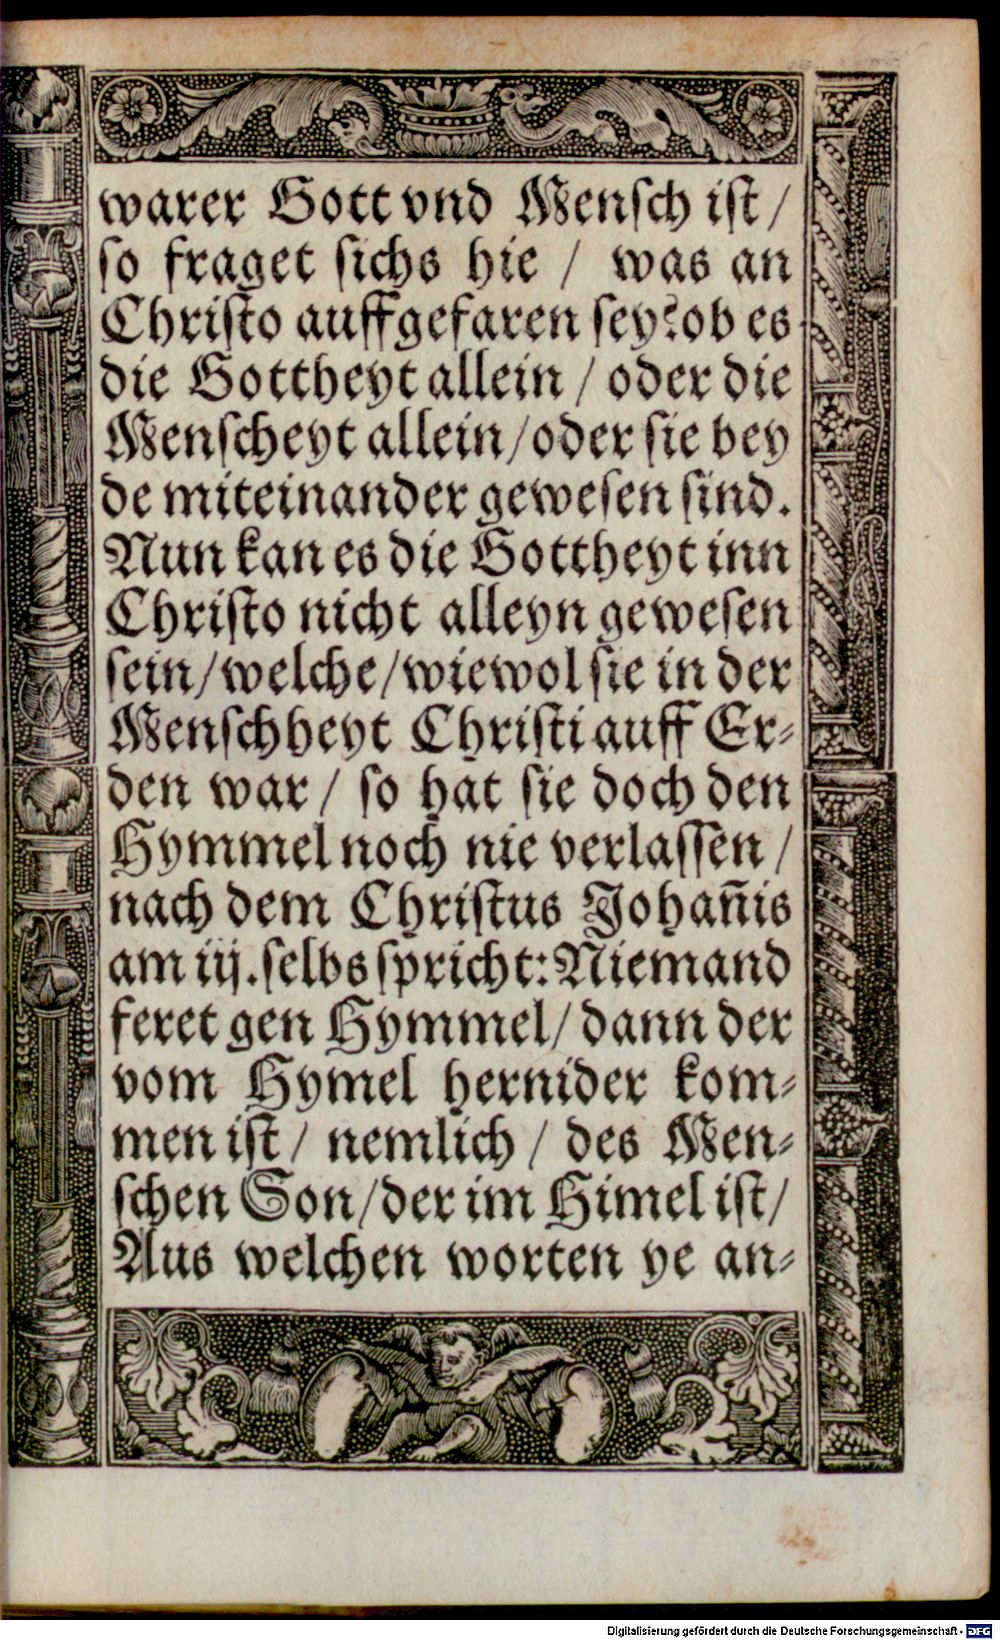 warer Gott vnd Mensch ist /
so fraget sichs hie / was an
Christo auffgefaren sey? ob es
die Gottheyt allein / oder die
Menscheyt allein / oder sie bey
de miteinander gewesen sind.
Nun kan es die Gottheyt inn
Christo nicht alleyn gewesen
sein / welche / wiewol sie in der
Menschheyt Christi auff Er-
den war / so hat sie doch den
Hymmel noch nie verlassen /
nach dem Christus Johan̄is
am iij. selbs spricht: Niemand
feret gen Hymmel / dann der
vom Hymel hernider kom-
men ist / nemlich / des Men-
schen Son / der im Himel ist /
Aus welchen worten ye an-
Digitalisierung gefördert durch die Deutsche Forschungsgemeinschaft - DFG